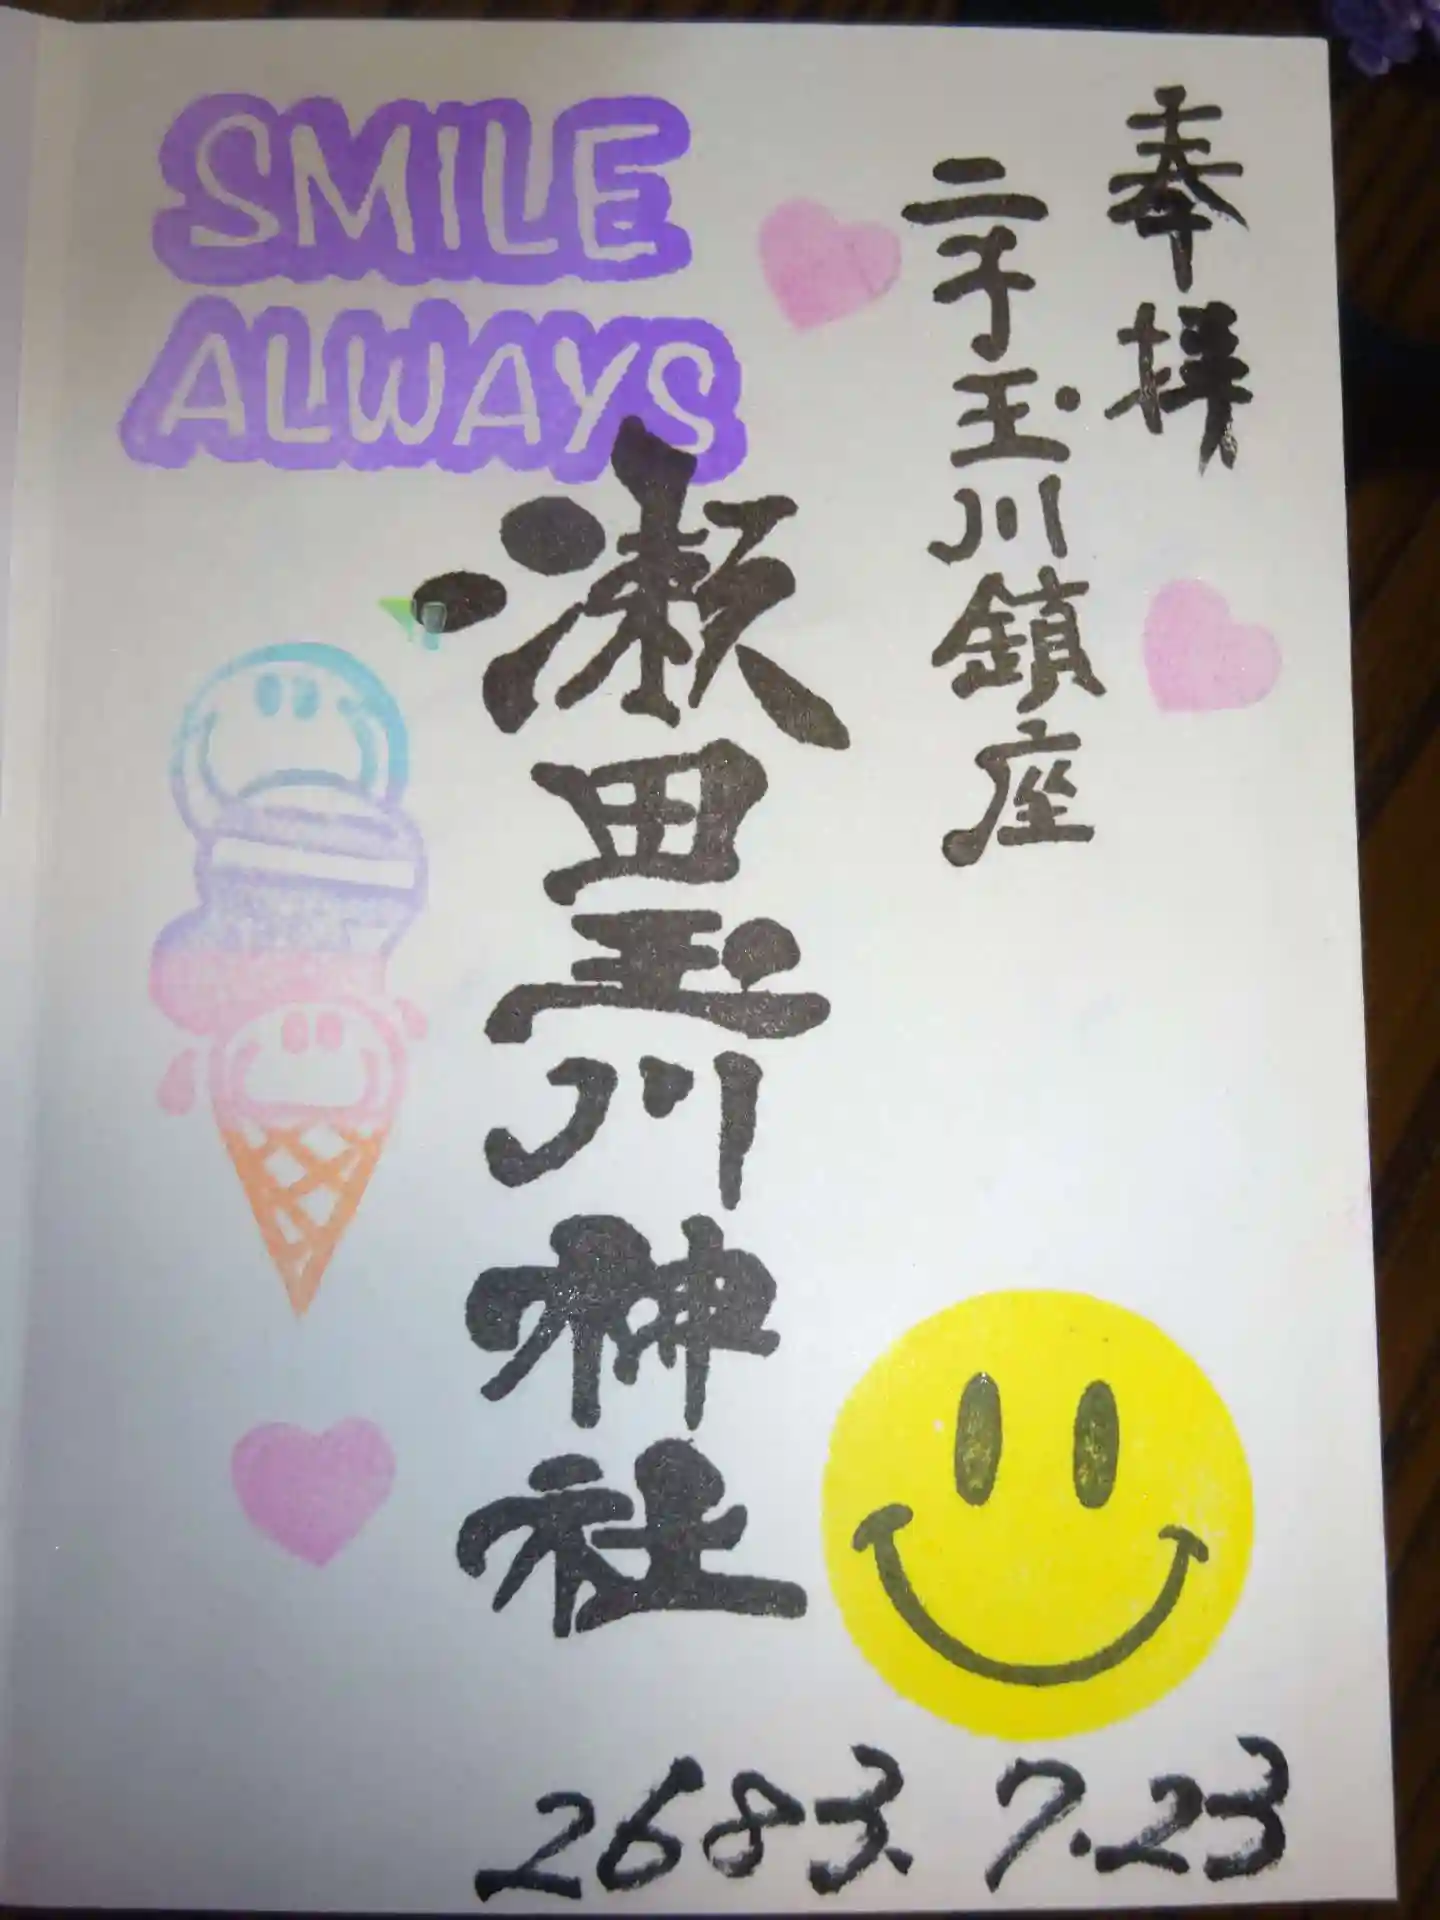 奉拝
二子玉川鎮座
SMILE
ALWAYS
瀬田玉川神社
2683.7.23